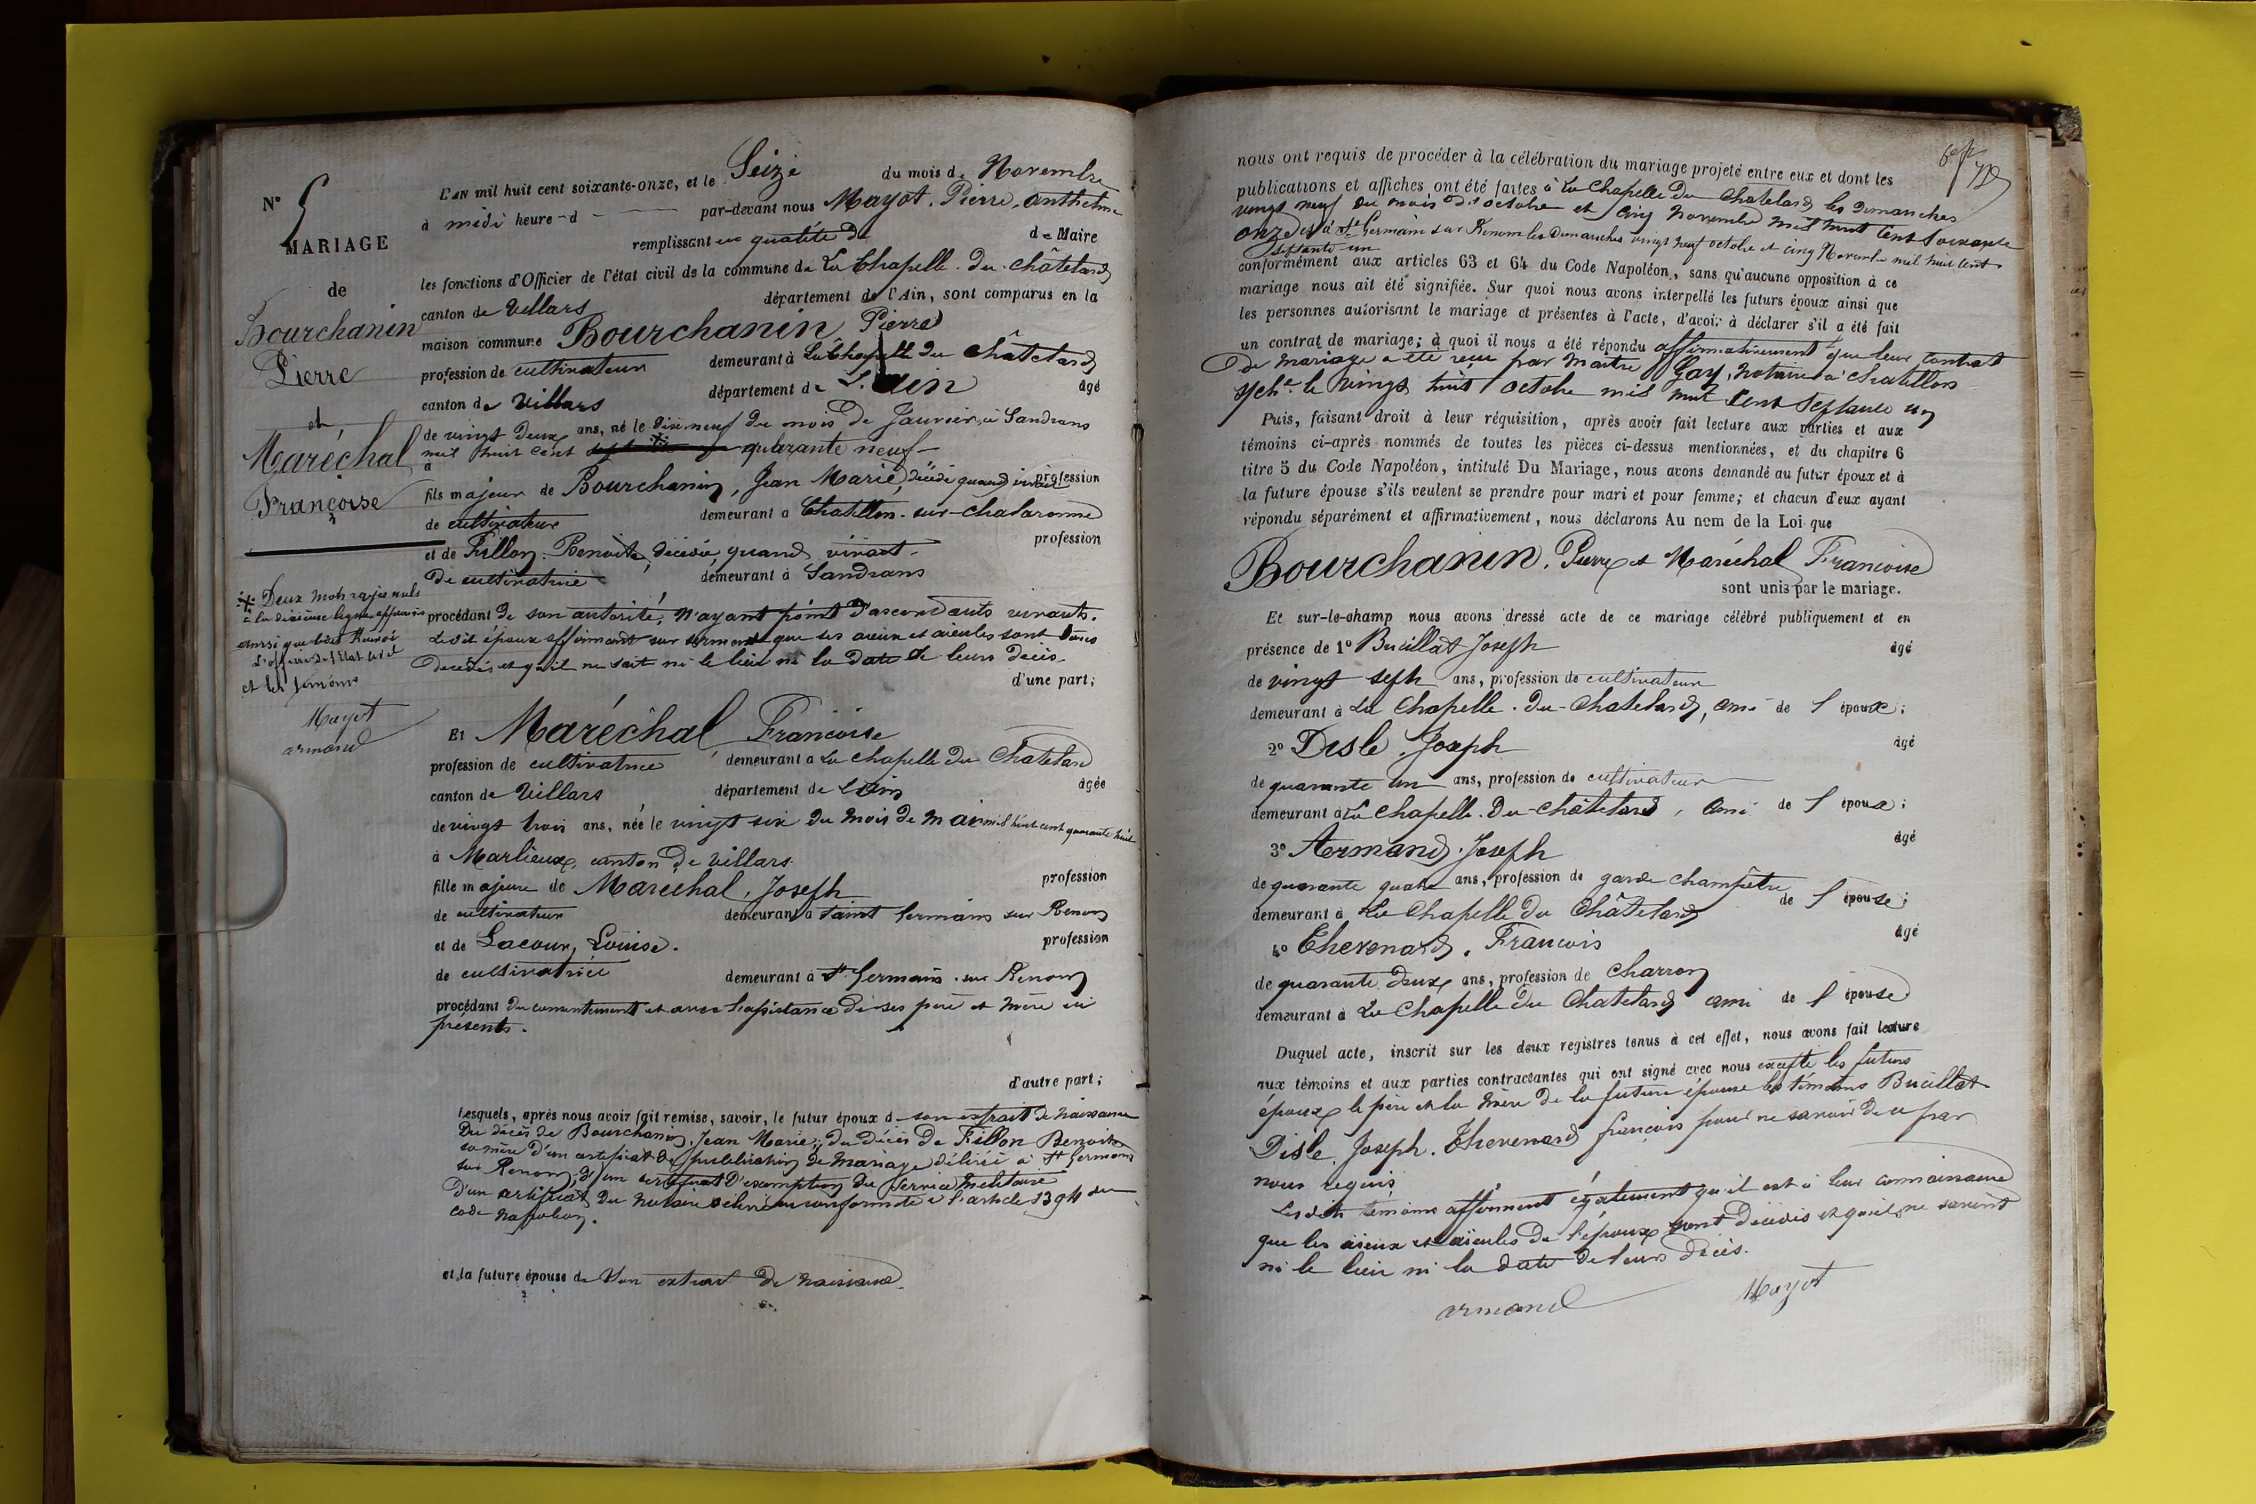 N° 5
MARIAGE
de
Bourchanin
Pierre
et
Maréchal
Françoise
Deux mots rayés nuls
à la dixième ligne approuvés
ainsi que bon Renvoi
L'officier de l'Etat civil
et les témoins
Mayot
armand
L'AN mil huit cent soixante-onze, et le Seize du mois de Novembre
à midi heure d par-devant nous Mayot, Pierre, Anthelme
remplissant en qualité de de Maire
les fonctions d'Officier de l'état civil de la commune de La Chapelle-du-Châtelard
canton de Villars département de l'Ain, sont comparus en la
maison commune Bourchanin Pierre
profession de cultivateur demeurant à La Chapelle du Châtelard
canton de Villars département de L'Ain âgé
de vingt deux ans, né le dixneuf du mois de Janvier, à Sandrans
mil huit cent quarante neuf
à
fils majeur de Bourchanin, Jean Marie, décédé quand vivait profession
de cultivateur demeurant à Chatillon-sur-Chalaronne
et de Fillon Benoite, décédée, quand vivait profession
de cultivatrice demeurant à Sandrans
procédant de son autorité, n'ayant point d'ascendants vivants.
Ledit époux affirmant sur serment que ses aieux et aieules sont tous
décédés et qu'il ne sait ni le lieu ni la date de leurs décès.
d'une part;
Et Maréchal Françoise
profession de cultivatrice demeurant à La Chapelle du Chatelard
canton de Villars département de l'Ain âgée
de vingt trois ans, née le vingt six du mois de mai mil huit cent quarante huit
à Marlieux, canton de Villars
fille majeure de Maréchal, Joseph profession
de cultivateur demeurant à Saint Germain sur Renon
et de Lacour, Louise. profession
de cultivatrice demeurant à St Germain-sur Renon
procédant du consentement et avec l'assistance de ses père et mère ici
présents.
d'autre part;
Lesquels, après nous avoir fait remise, savoir, le futur époux d son extrait de naissance
Du décès de Bourchanin, Jean Marie; du décès de Fillon Benoite
sa mère d'un certificat de publication de mariage délivré à St Germain
sur Renon, d'un certificat d'exemption du Service Militaire
D'un certificat du notaire délivré en conformité à l'article 1394 du
code Napoléon.
et la future épouse de son extrait de naissance.
nous ont requis de procéder à la célébration du mariage projeté entre eux et dont les
publications et affiches ont été faites à La Chapelle du Chatelard les dimanches
vingt neuf du mois d'octobre et cinq novembre mil huit cent soixante
onze et à St Germain sur Renom les Dimanches vingt neuf octobre et cinq Novembre mil huit cent
septante un
conformément aux articles 63 et 64 du Code Napoléon, sans qu'aucune opposition à ce
mariage nous ait été signifiée. Sur quoi nous avons interpellé les futurs époux ainsi que
les personnes autorisant le mariage et présentes à l'acte, d'avoir à déclarer s'il a été fait
un contrat de mariage; à quoi il nous a été répondu affirmativement que leur contrat
de mariage a été reçu par maître Gay, notaire à Chatillon
s/ch. le vingt huit octobre mil huit cent septante un
Puis, faisant droit à leur réquisition, après avoir fait lecture aux parties et aux
témoins ci-après nommés de toutes les pièces ci-dessus mentionnées, et du chapitre 6
titre 5 du Code Napoléon, intitulé Du Mariage, nous avons demandé au futur époux et à
la future épouse s'ils veulent se prendre pour mari et pour femme; et chacun d'eux ayant
répondu séparément et affirmativement, nous déclarons Au nom de la Loi que
Bourchanin, Pierre et Maréchal Françoise
sont unis par le mariage.
Et sur-le-champ nous avons dressé acte de ce mariage célébré publiquement et en
présence de 1° Bucillat Joseph âgé
de vingt sept ans, profession de cultivateur
demeurant à La Chapelle-du-Chatelard, ami de l'époux;
2° Disle Joseph âgé
de quarante un ans, profession de cultivateur
demeurant à La Chapelle-Du-Châtelard, ami de l'époux;
3° Armand, Joseph âgé
de quarante quatre ans, profession de garde champêtre
demeurant à La Chapelle du Châtelard de l'épouse;
4° Thevenard, Francois âgé
de quarante deux ans, profession de Charron
demeurant à La Chapelle du Chatelard ami de l'épouse
Duquel acte, inscrit sur les deux registres tenus à cet effet, nous avons fait lecture
aux témoins et aux parties contractantes qui ont signé avec nous excepté les futurs
époux le père et la mère de la future épouse les témoins Bucillat
Disle Joseph, Thevenard françois pour ne savoir de ce par
nous requis
Lesdits témoins affirment également qu'il est à leur connaissance
que les aieux et aieules de l'époux sont décédés et qu'ils ne savent
ni le lieu ni la date de leurs décès.
armand Mayot